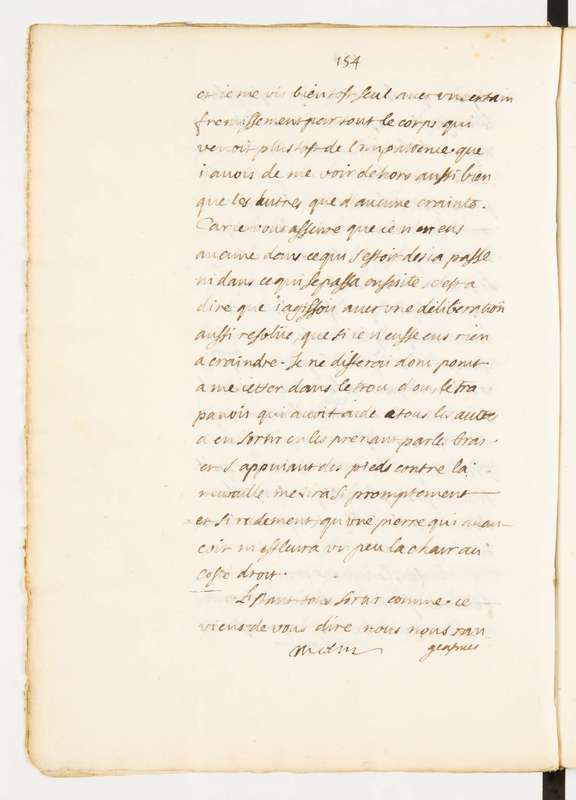 154
et ie me vis bientost seul auec vn certain
fremissement par tout le corps qui
venoit plustost de l'impatience que
i'auois de me voir dehors aussi bien
que les autres que d'aucune crainte.
Car ie vous asseure que ie n'en eus
aucune dans ce qui s'estoit desia passé
ni dans ce qui se passa ensuite, c'est a
dire que i'agissois auec vne deliberation
aussi resolüe, que si ie n'eusse eus rien
a craindre. Je ne differai donc point
a me ietter dans le trou, d'ou le tra
panois qui auoit aidé a tous les autres
a en sortir en les prenant par les bras.
et s'appuiant des pieds contre la
muraille me tira si promptement
et si rudement, qu'vne pierre qui auan-
çoit m'effleura vn peu la chair au
costé droit.
Estant tous sortis comme ie
viens de vous dire nous nous ran
geasmes